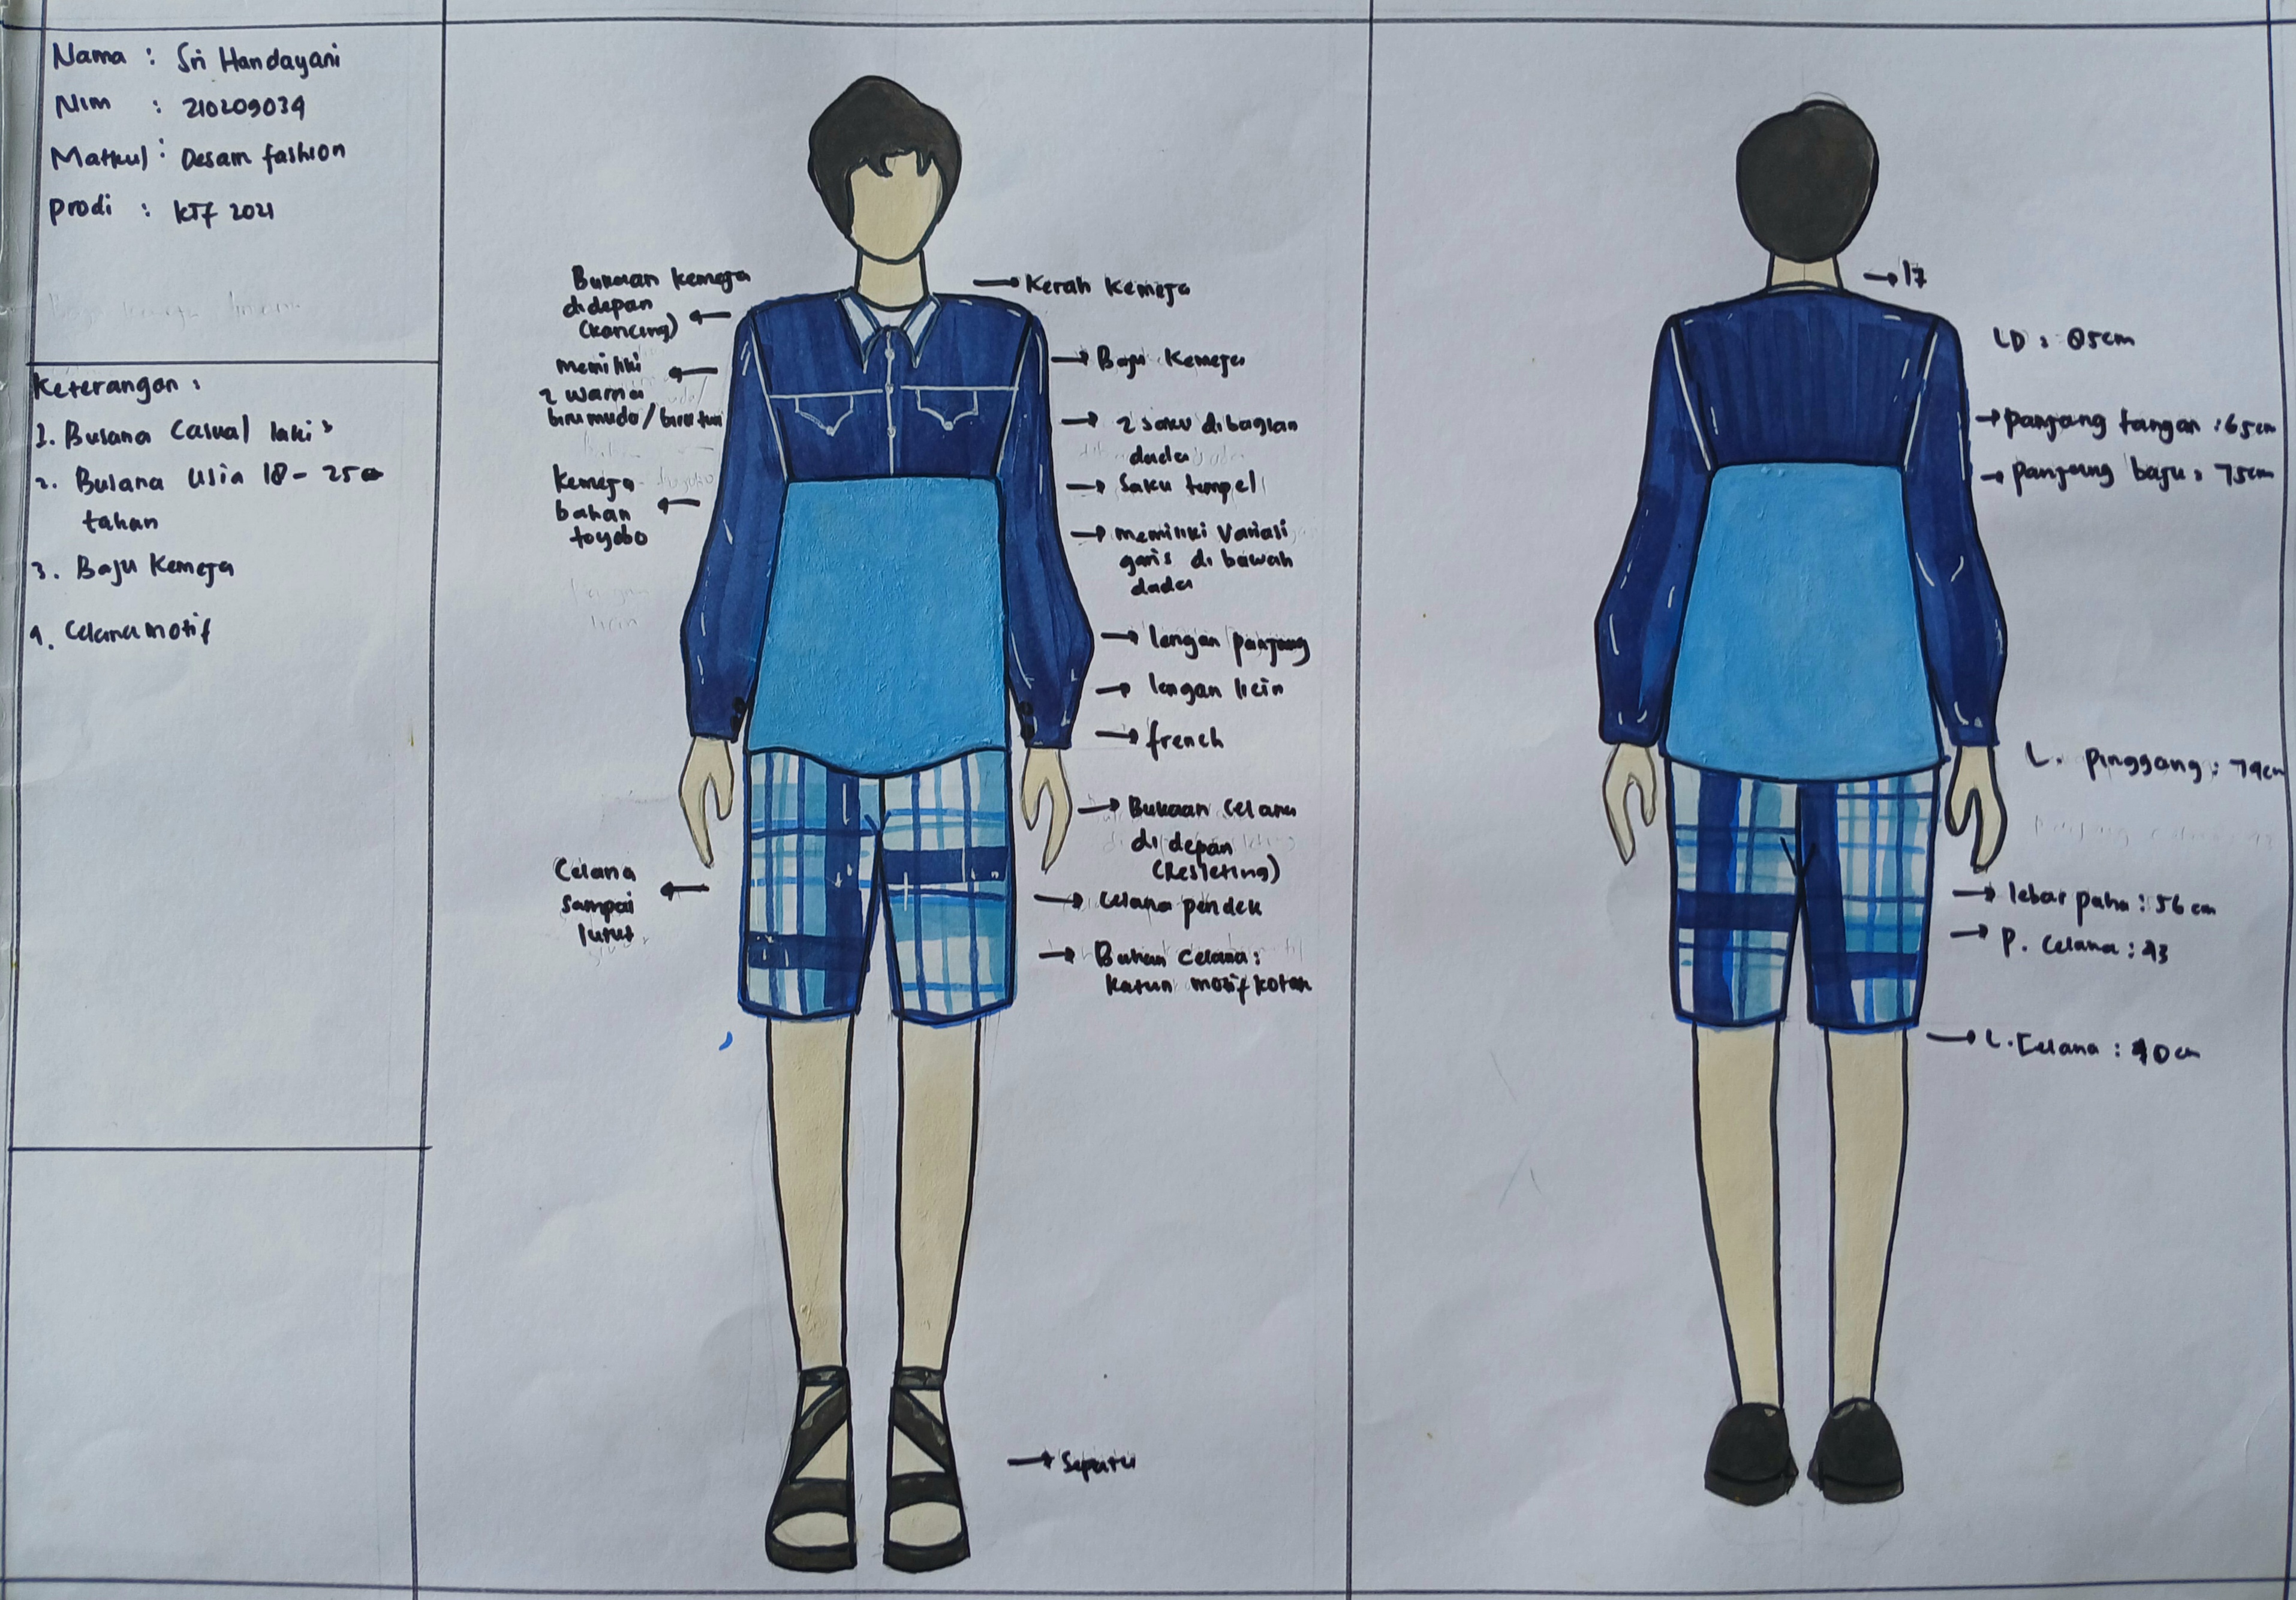 Nama : Sri Handayani
Nim : 210209034
Matkul : Desain fashion
prodi : KTF 2021
Keterangan :
1. Busana Casual laki²
2. Busana Usia 18 - 25
tahun
3. Baju Kemeja
4. Celana motif
Bukaan kemeja
didepan
(kancing)
memiliki
2 warna
biru muda/biru tua
Kemeja
bahan
toyobo
Celana
sampai
lutut
Kerah kemeja
Baju Kemeja
2 saku dibagian
dada
Saku tempel
memiliki Variasi
garis di bawah
dada
lengan panjang
lengan licin
french
Bukaan Celana
di depan
(Resleting)
Celana pendek
Bahan Celana :
katun motif kotak
Sepatu
17
LD : 85cm
panjang tangan : 65cm
panjang baju : 75cm
L. pinggang : 79cm
lebar paha : 56 cm
P. Celana : 43
L. Celana : 40 cm